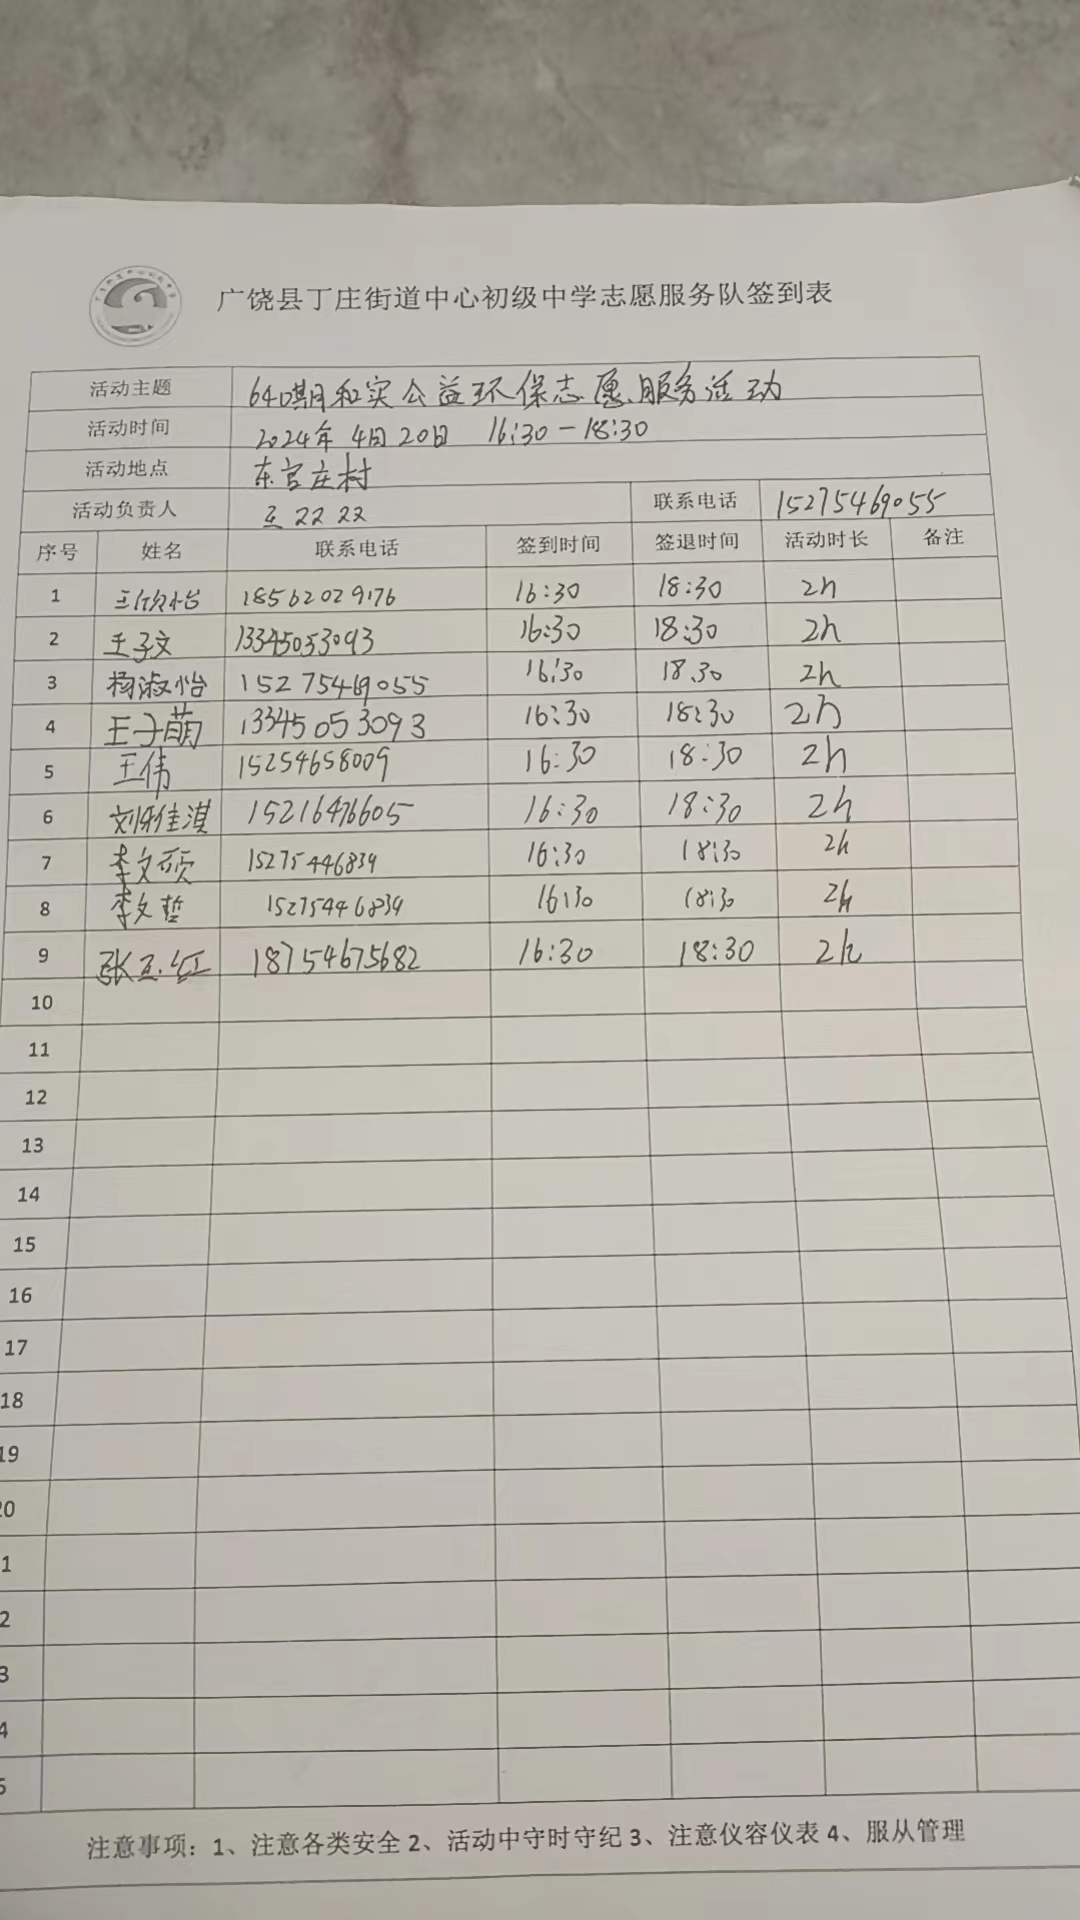 广饶县丁庄街道中心初级中学志愿服务队签到表
活动主题 640期和实公益环保志愿服务活动
活动时间 2024年4月20日 16:30-18:30
活动地点 东官庄村
活动负责人 联系电话 15275469055
序号 姓名 联系电话 签到时间 签退时间 活动时长 备注
1 王欣怡 18562029176 16:30 18:30 2h
2 王子文 13345053093 16:30 18:30 2h
3 杨淑怡 15275469055 16:30 18.30 2h
4 王子萌 13345053093 16:30 18:30 2h
5 王伟 15254658009 16:30 18:30 2h
6 刘雅淇 15216476605 16:30 18:30 2h
7 李文硕 15275446839 16:30 18:30 2h
8 李文哲 15275446839 16:30 18:30 2h
9 张玉红 18754675682 16:30 18:30 2h
10
11
12
13
14
15
16
17
18
19
20
1
2
3
4
5
注意事项：1、注意各类安全 2、活动中守时守纪 3、注意仪容仪表 4、服从管理